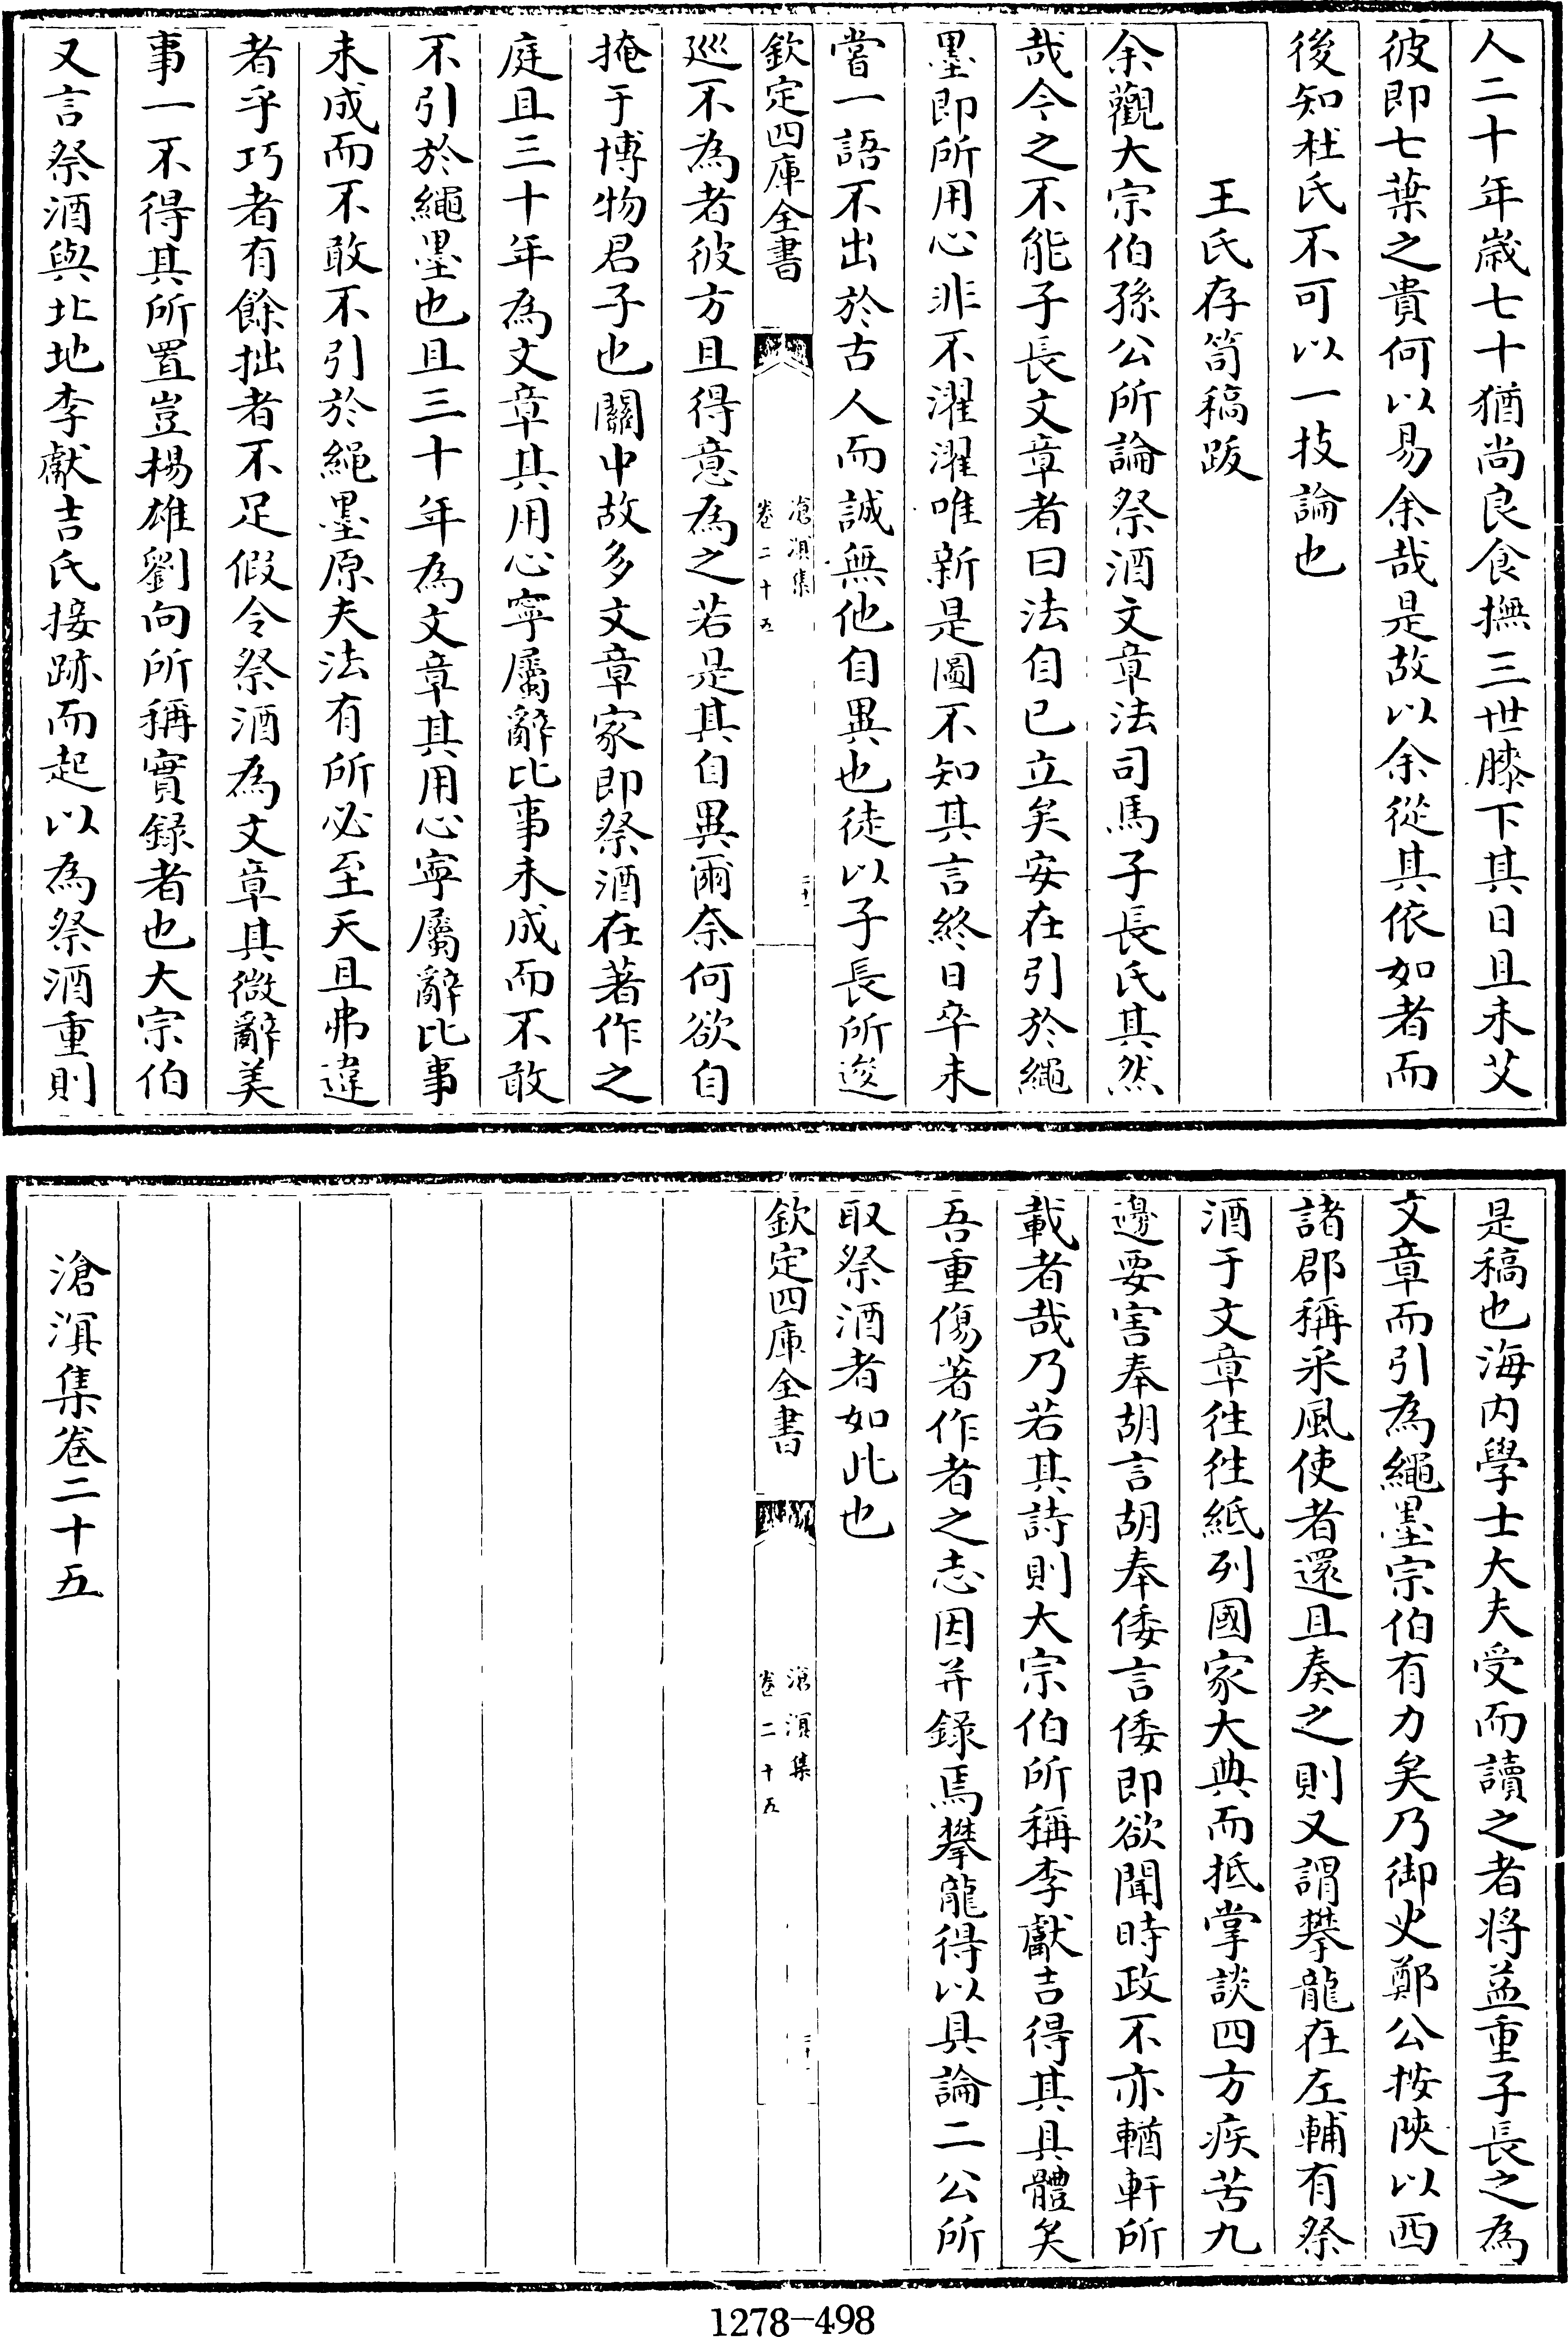 人二十年歳七十猶尚良食撫三世膝下其日且未艾
彼即七葉之貴何以易余哉是故以余從其依如者而
後知杜氏不可以一技論也
王氏存笥稿跋
余觀大宗伯孫公所論祭酒文章法司馬子長氏其然
哉今之不能子長文章者曰法自已立矣安在引於繩
墨即所用心非不濯濯唯新是圖不知其言終日卒未
嘗一語不出於古人而誠無他自異也徒以子長所逡
欽定四庫全書
滄溟集
卷二十五
三十一
巡不為者彼方且得意為之若是其自異爾奈何欲自
掩于博物君子也關中故多文章家即祭酒在著作之
庭且三十年為文章其用心寧屬辭比事未成而不敢
不引於繩墨也且三十年為文章其用心寧屬辭比事
未成而不敢不引於繩墨原夫法有所必至天且弗違
者乎巧者有餘拙者不足假令祭酒為文章其微辭美
事一不得其所置豈楊雄劉向所稱實録者也大宗伯
又言祭酒與北地李獻吉氏接跡而起以為祭酒重則
是稿也海内學士大夫受而讀之者将益重子長之為
文章而引為繩墨宗伯有力矣乃御史鄭公按陜以西
諸郡稱采風使者還且奏之則又謂攀龍在左輔有祭
酒于文章徃徃紙列國家大典而抵掌談四方疾苦九
邊要害奉胡言胡奉倭言倭即欲聞時政不亦輶軒所
載者哉乃若其詩則大宗伯所稱李獻吉得其具體矣
吾重傷著作者之志因并録焉攀龍得以具論二公所
取祭酒者如此也
欽定四庫全書
滄溟集
卷二十五
滄溟集卷二十五
1278-498